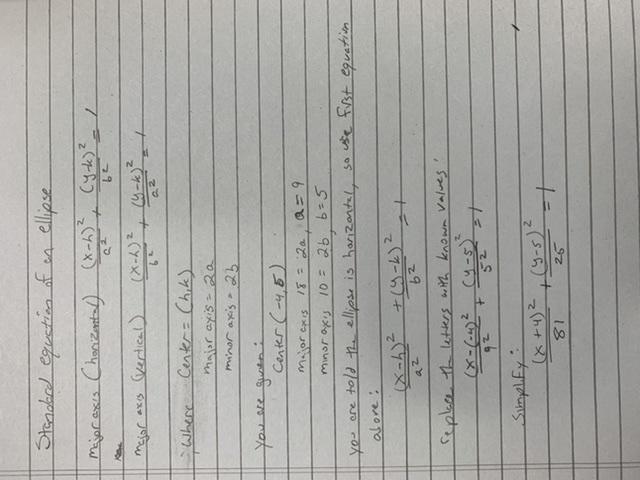 Standard equation of an ellipse
major axis (horizontal) (x-h)²/a² + (y-k)²/b² = 1
major axis (vertical) (x-h)²/b² + (y-k)²/a² = 1
Where Center = (h,k)
major axis = 2a
minor axis = 2b
You are given:
Center (-4,5)
major axis 18 = 2a, a = 9
minor axis 10 = 2b, b = 5
you are told the ellipse is horizontal, so use first equation
above:
(x-h)²/a² + (y-k)²/b² = 1
replace the letters with known values:
(x-(-4))²/9² + (y-5)²/5² = 1
Simplify:
(x+4)²/81 + (y-5)²/25 = 1